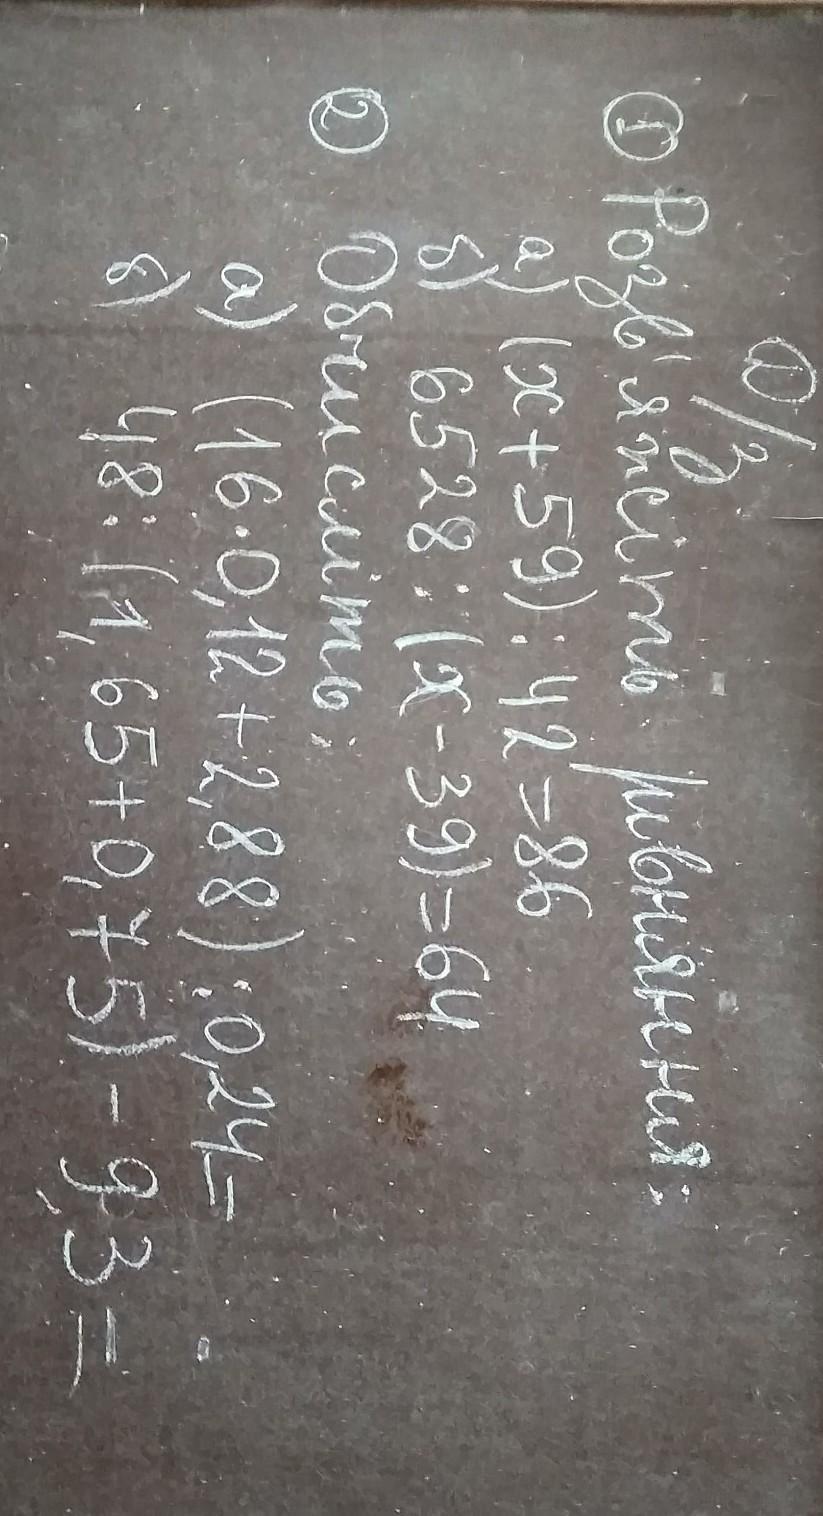 Д/З
① Розв'яжіть рівняння:
а) (x+59):42=86
б) 6528:(x-39)=64
② Обчисліть:
а) (16·0,12+2,88):0,24=
б) 48:(1,65+0,75)-9,3=